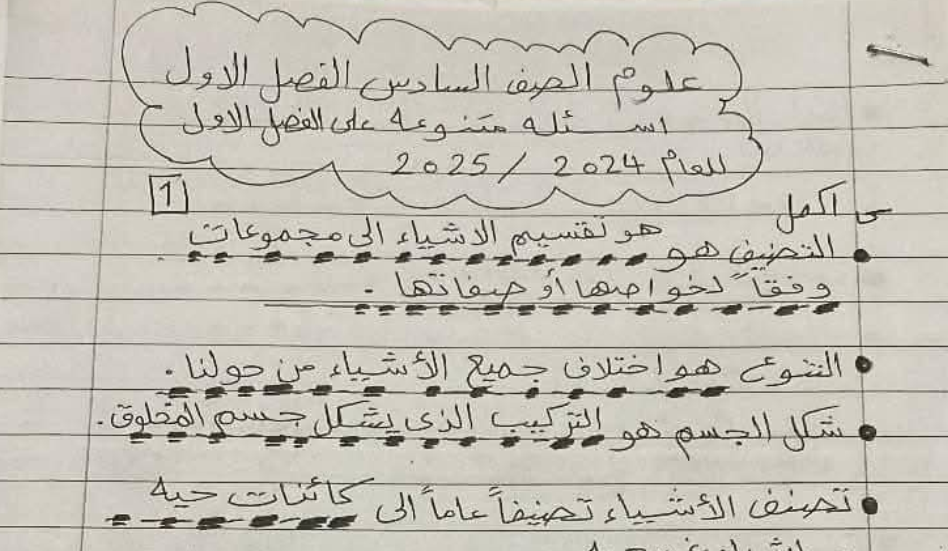 علوم الصف السادس الفصل الاول
اسئله متنوعه على الفصل الاول
للعام 2024 / 2025
1
س اكمل
التصنيف هو هو تقسيم الاشياء الى مجموعات
وفقاً لخواصها أو صفاتها .
التنوع هو اختلاف جميع الأشياء من حولنا .
شكل الجسم هو التركيب الذى يشكل جسم المخلوق .
تصنف الأشياء تصنيفاً عاماً الى كائنات حيه